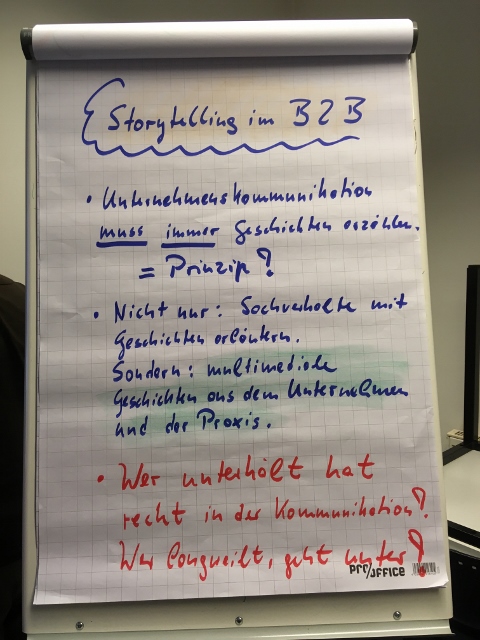 Storytelling im B2B
• Unternehmenskommunikation
muss immer Geschichten erzählen.
= Prinzip?
• Nicht nur: Sachverhalte mit
Geschichten erläutern.
Sondern: multimediale
Geschichten aus dem Unternehmen
und der Praxis.
• Wer unterhält hat
recht in der Kommunikation?
Wer langweilt, geht unter?
PRO/OFFICE